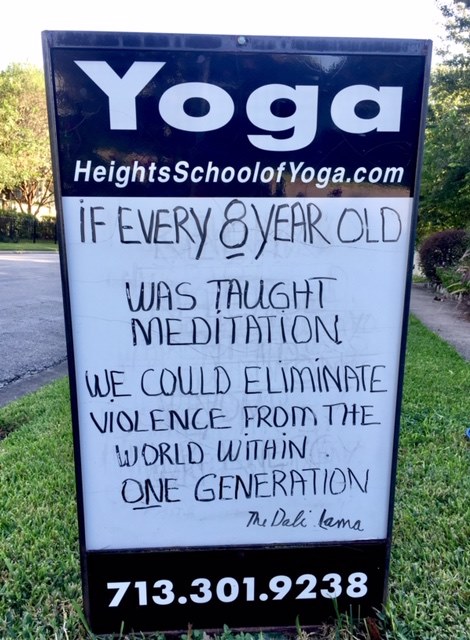 Yoga
HeightsSchoolofYoga.com
iF EVERY 8 YEAR OLD
WAS TAUGHT
MEDITATION
WE COULD ELIMINATE
VIOLENCE FROM THE
WORLD WITHIN
ONE GENERATION
The Dali Lama
713.301.9238